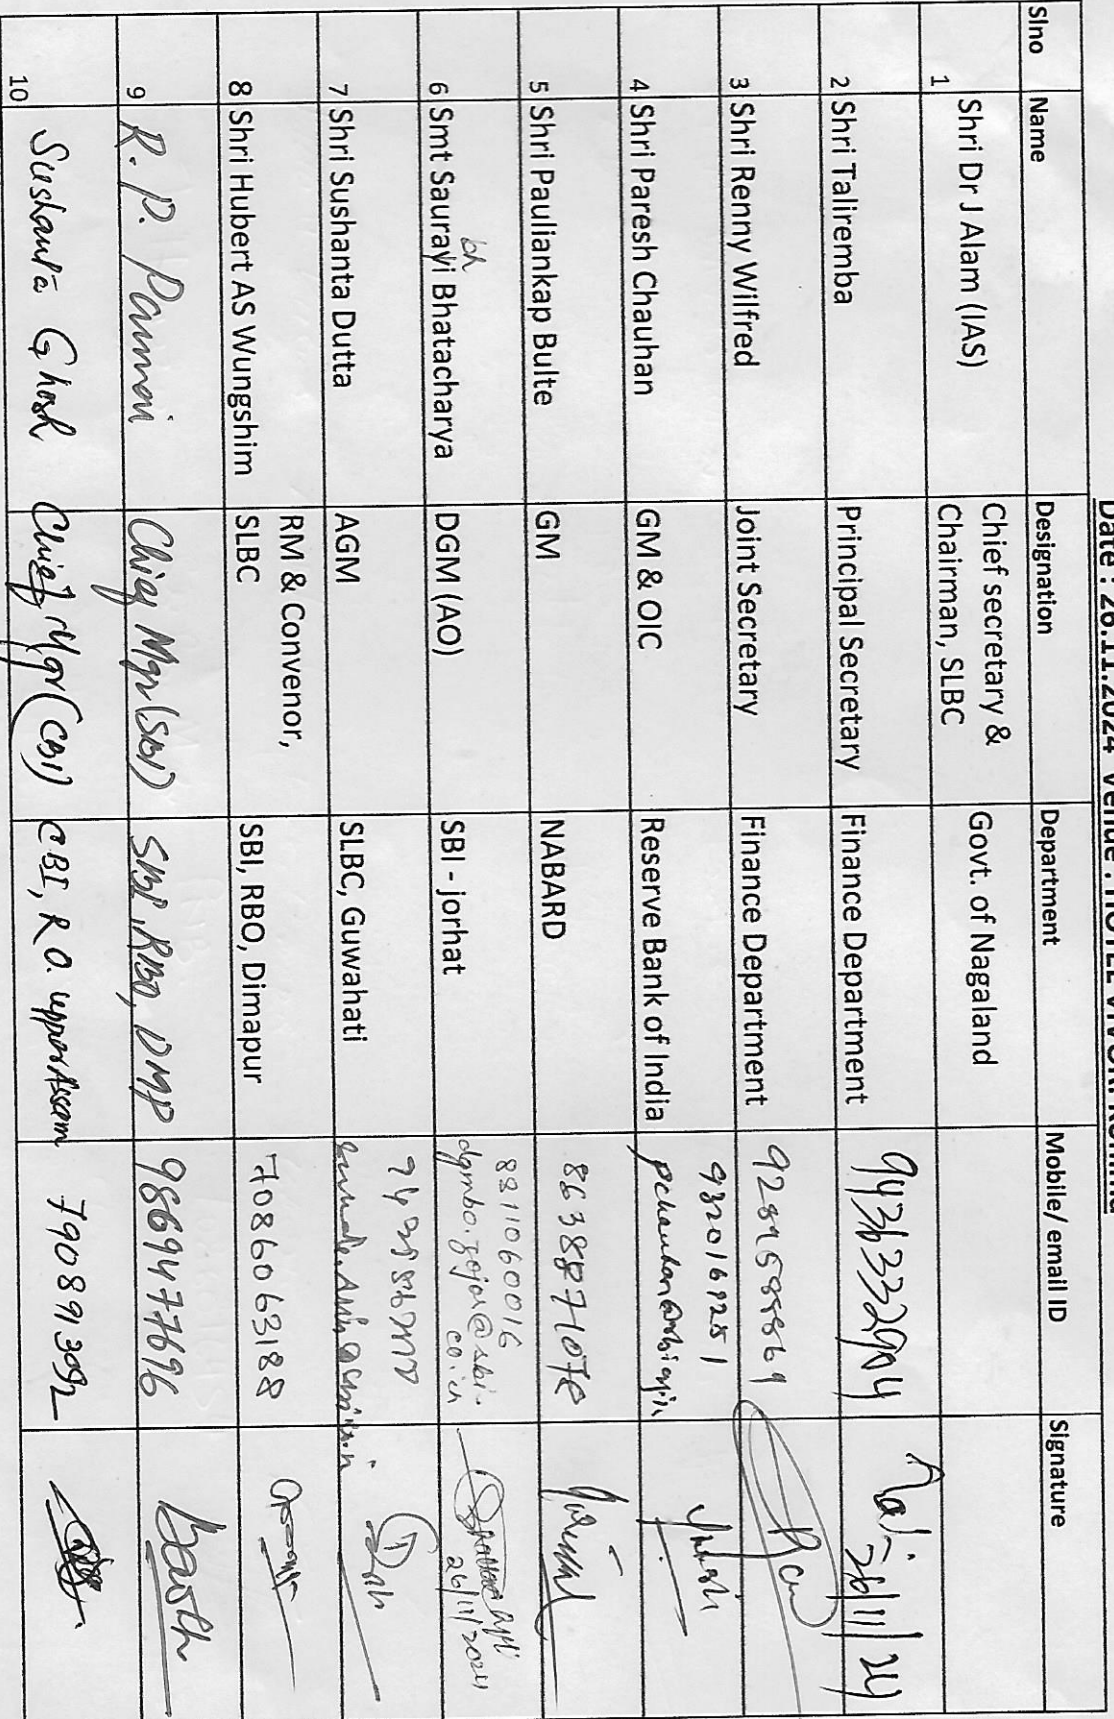 Date : 26.11.2024 Venue : HOTEL VIVOR. Kohima
Slno Name Designation Department Mobile/ email ID Signature
1 Shri Dr J Alam (IAS) Chief secretary & Chairman, SLBC Govt. of Nagaland
2 Shri Taliremba Principal Secretary Finance Department 9436332904 26/11/24
3 Shri Renny Wilfred Joint Secretary Finance Department
4 Shri Paresh Chauhan GM & OIC Reserve Bank of India
5 Shri Pauliankap Bulte GM NABARD
bh
6 Smt Saurayi Bhatacharya DGM (AO) SBI - jorhat 8811060016 dgmbo.zojor@sbi.co.in 26/11/2024
7 Shri Sushanta Dutta AGM SLBC, Guwahati
8 Shri Hubert AS Wungshim RM & Convenor, SLBC SBI, RBO, Dimapur 7086063188
9 R. P. Chief Mgr (SBI) SBI, RBO, DMP 9869477696
10 Sushanta Ghosh Chief Mgr (CBI) CBI, R.O. upper Assam 7908913092